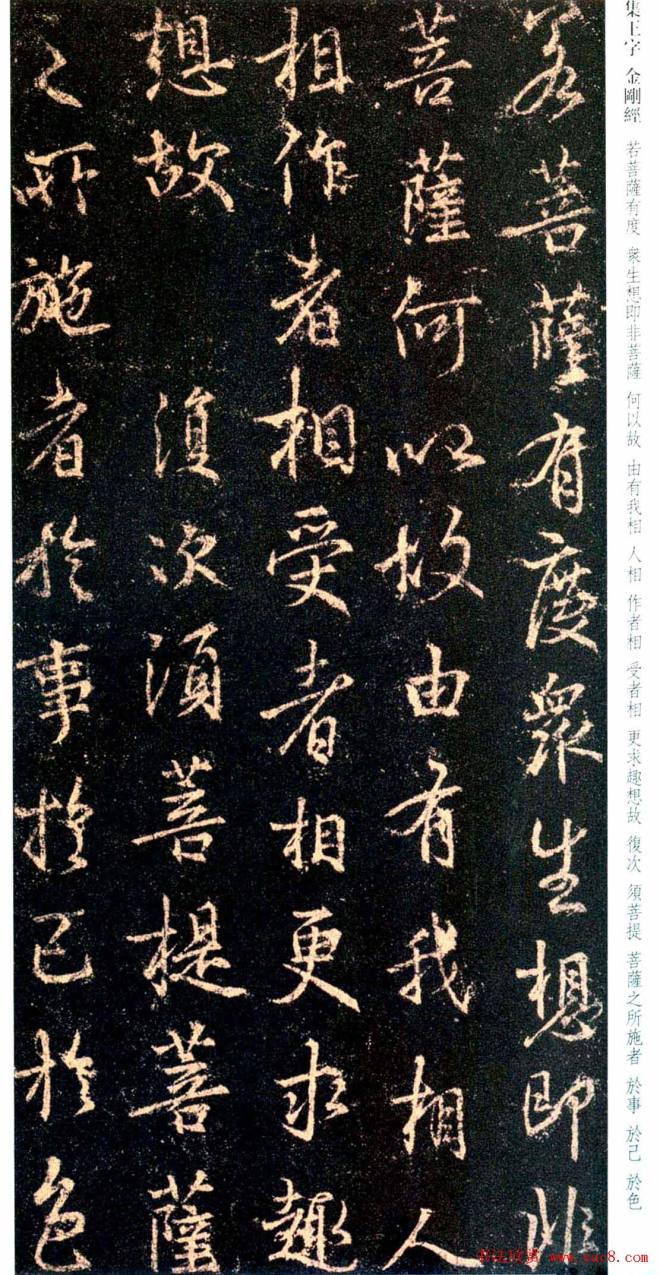 集王字 金剛經 若菩薩有度 衆生想即非菩薩 何以故 由有我相 人相 作者相 受者相 更求趣想故 復次 須菩提 菩薩之所施者 於事 於己 於色
若菩薩有度衆生想即非
菩薩何以故由有我相人
相作者相受者相更求趣
想故 復次須菩提菩薩
之所施者於事於己於色
书法欣赏 www.yac8.com